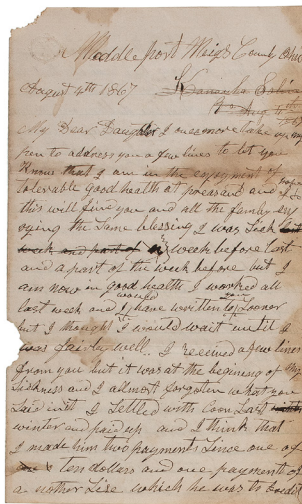 Middle port Meigs County Ohio
August 4th 1867 Kanawha Salines
Aug 4th
My Dear Daughter I once more take up my
pen to address you a few lines to let you
Know that I am in the enjoyment of
tolerable good health at preasant and I hope
this will find you and all the family enj
oying the Same blessing I was Sick last
week and part of week before last
and a part of the week before but I
am now in good health I worked all
last week and I would have written to you Sooner
but I thought I would wait until I
was fairly well. I received a few lines
from you but it was at the begening of my
Sickness and I allmost forgoten what you
Said in it I Settled with Last
winter and paid up and I think that
I made him two payments Since one of
ten dollars and one payment of
a nother Sise which he was to